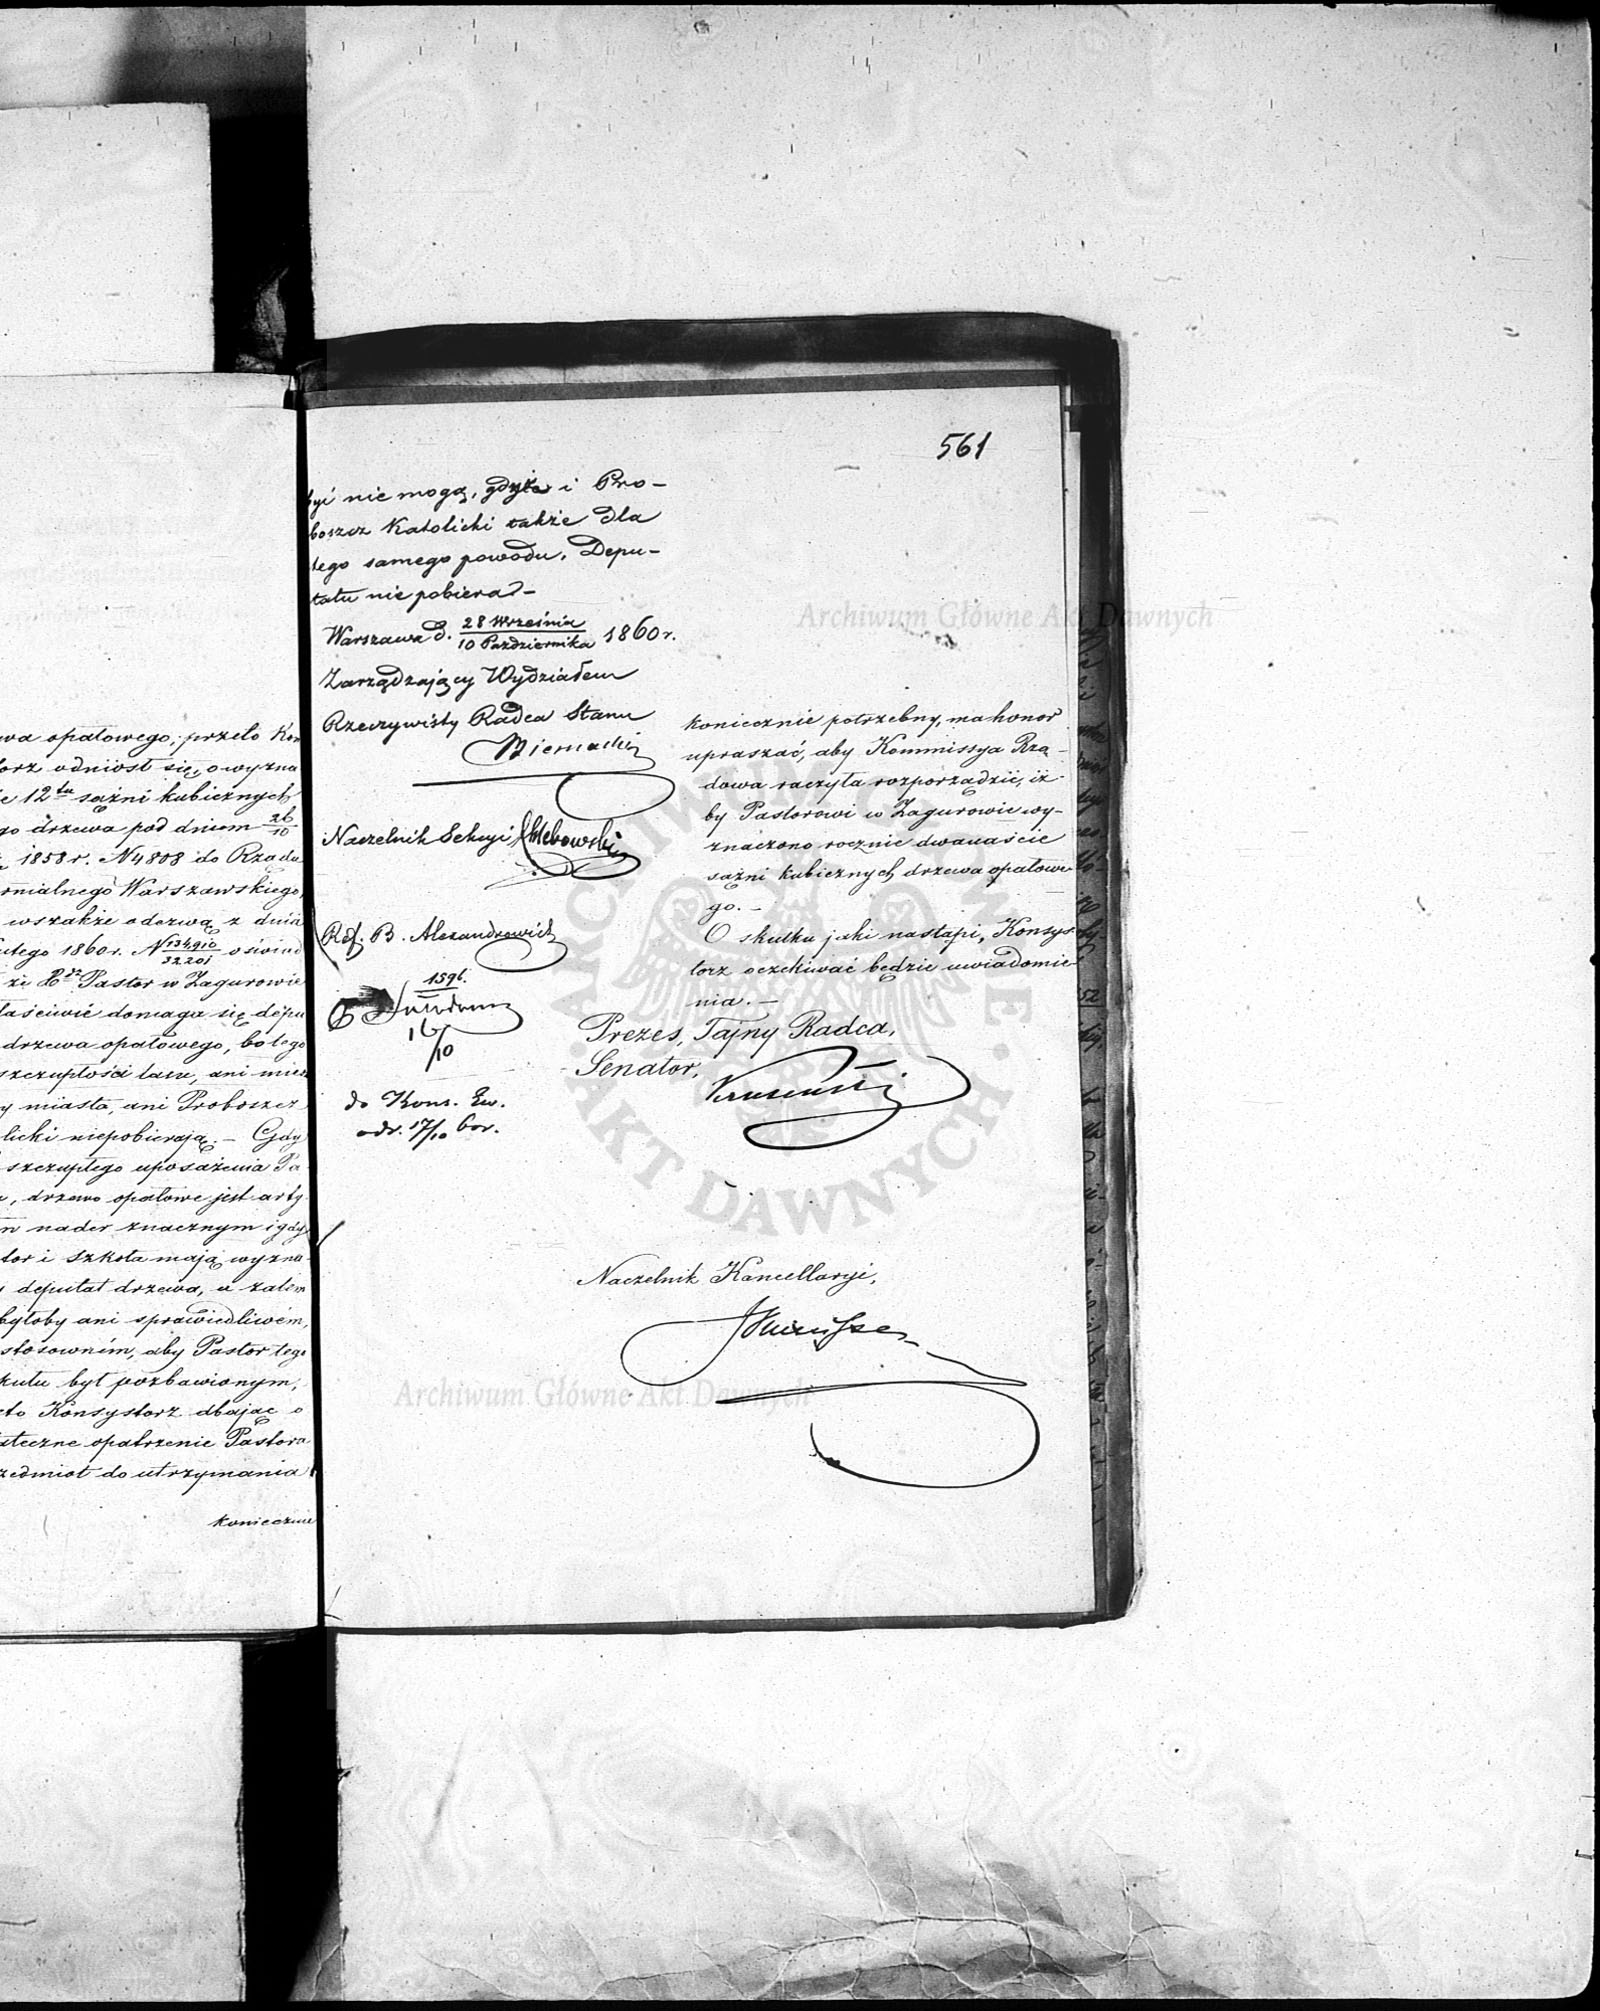 wa opałowego, przeto Kon
torz odniosł się o wyzna
e 12tu sążni kubicznych
go drzewa pod dniem 26/10
1858 r. N 4808 do Rządu
rnialnego Warszawskiego,
wszakże odezwą z dnia
utego 1860 r. N 134910/32201 oświad
że Pastor w Zagurowie
łaściwie domaga się depu
drzewa opałowego, bo tego
szczupłości lasu, ani miesz
y miasta, ani Proboszcz
licki niepobierają. – Gdy
szczupłego uposażenia Pa
, drzewo opałowe jest arty
m nader znacznym i gdy
tor i szkoła mają wyzna
deputat drzewa, a zatem
byłoby ani sprawiedliwem,
stosownem, aby Pastor tego
kułu był pozbawionym,
to Konsystorz dbając o
teczne opatrzenie Pastora
zedmiot do utrzymania
koniecznie
561
być nie mogą, gdyż i Pro-
boszcz Katolicki także dla
tego samego powodu, Depu-
tatu nie pobiera –
Warszawa d. 28 Września/10 Października 1860 r.
Zarządzający Wydziałem
Rzeczywisty Radca Stanu
Biernacki
Naczelnik Sekcyi Chlebowski
Ref. B. Alexandrowicz
1596.
16/10
do Kons. Ew.
odr. 17/10 bor.
koniecznie potrzebny, ma honor
upraszać, aby Kommissya Rzą-
dowa raczyła rozporządzić, iż
by Pastorowi w Zagurowie wy-
znaczono rocznie dwanaście
sążni kubicznych drzewa opałowe
go. –
O skutku jaki nastąpi, Konsys-
torz oczekiwać będzie uwiadomie-
nia. –
Prezes, Tajny Radca,
Senator,
Naczelnik Kancellaryi,
Archiwum Główne Akt Dawnych
Archiwum Główne Akt Dawnych